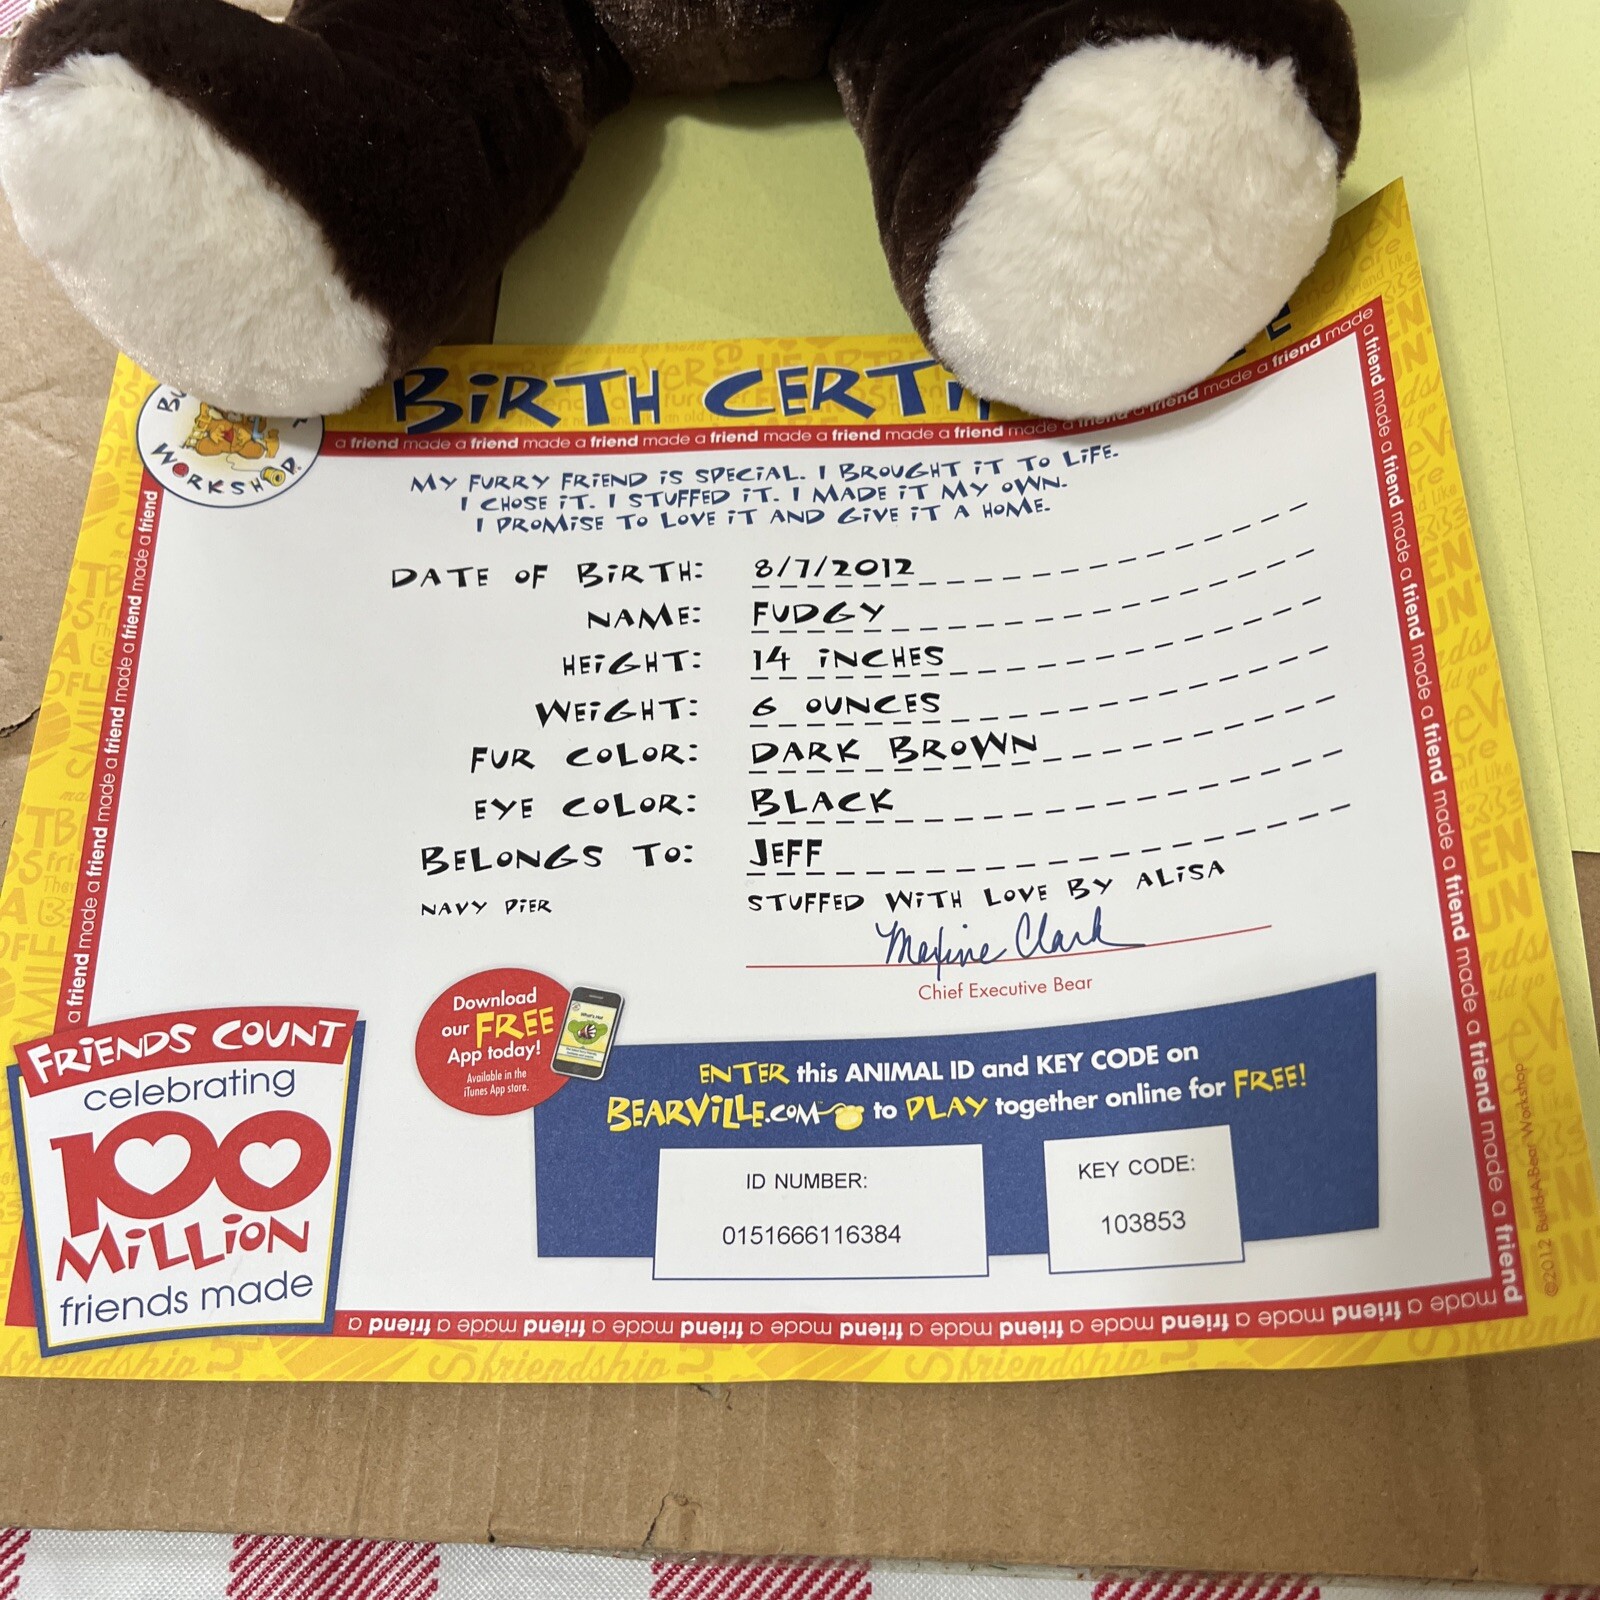 BIRTH CERTI
WORKSHOP.
a friend made a friend made a friend made a friend made a friend made a friend made a friend made a friend made
MY FURRY FRIEND IS SPECIAL. I BROUGHT IT TO LIFE.
I CHOSE IT. I STUFFED IT. I MADE IT MY OWN.
I PROMISE TO LOVE IT AND GIVE IT A HOME.
DATE OF BIRTH: 8/7/2012
NAME: FUDGY
HEIGHT: 14 INCHES
WEIGHT: 6 OUNCES
FUR COLOR: DARK BROWN
EYE COLOR: BLACK
BELONGS TO: JEFF
NAVY PIER STUFFED WITH LOVE BY ALISA
Maxine Clark
Chief Executive Bear
Download
our FREE
App today!
Available in the
iTunes App store.
FRIENDS COUNT
celebrating
100
MILLION
friends made
ENTER this ANIMAL ID and KEY CODE on
BEARVILLE.COM to PLAY together online for FREE!
ID NUMBER:
0151666116384
KEY CODE:
103853
©2012 Build-A-Bear Workshop
a friend made a friend made a friend made a friend made a friend made a friend made a friend made
a friend made a friend made a friend made a friend made a friend made a friend made a friend made a friend
a friend made a friend made a friend made a friend made a friend made a friend made a friend made